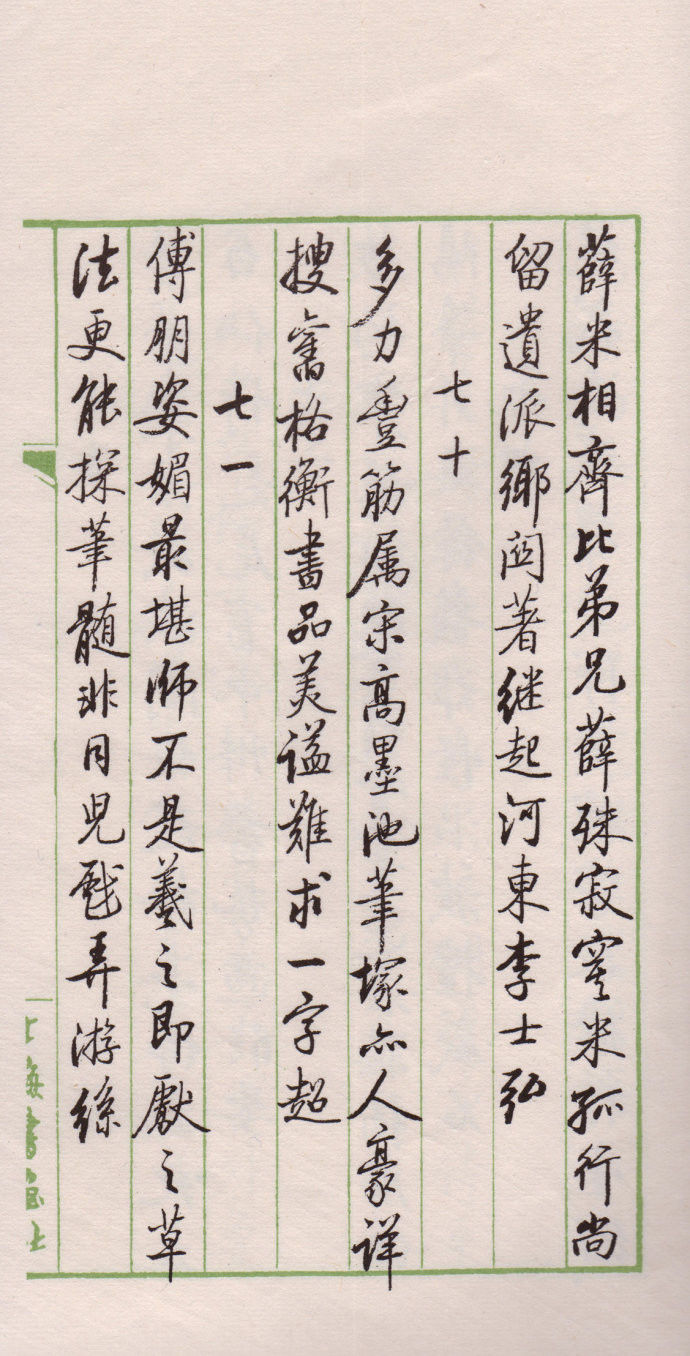 薛米相齊比弟兄薛殊寂寞米孤行尚
留遺派鄉閭著继起河東李士弘
七十
多力豐筋属宋高墨池筆塚亦人豪詳
搜舊格衡書品美谥難求一字超
七一
傅朋姿媚最堪師不是羲之即獻之草
法更能探筆髓非同児戲弄游絲
上海書畫社